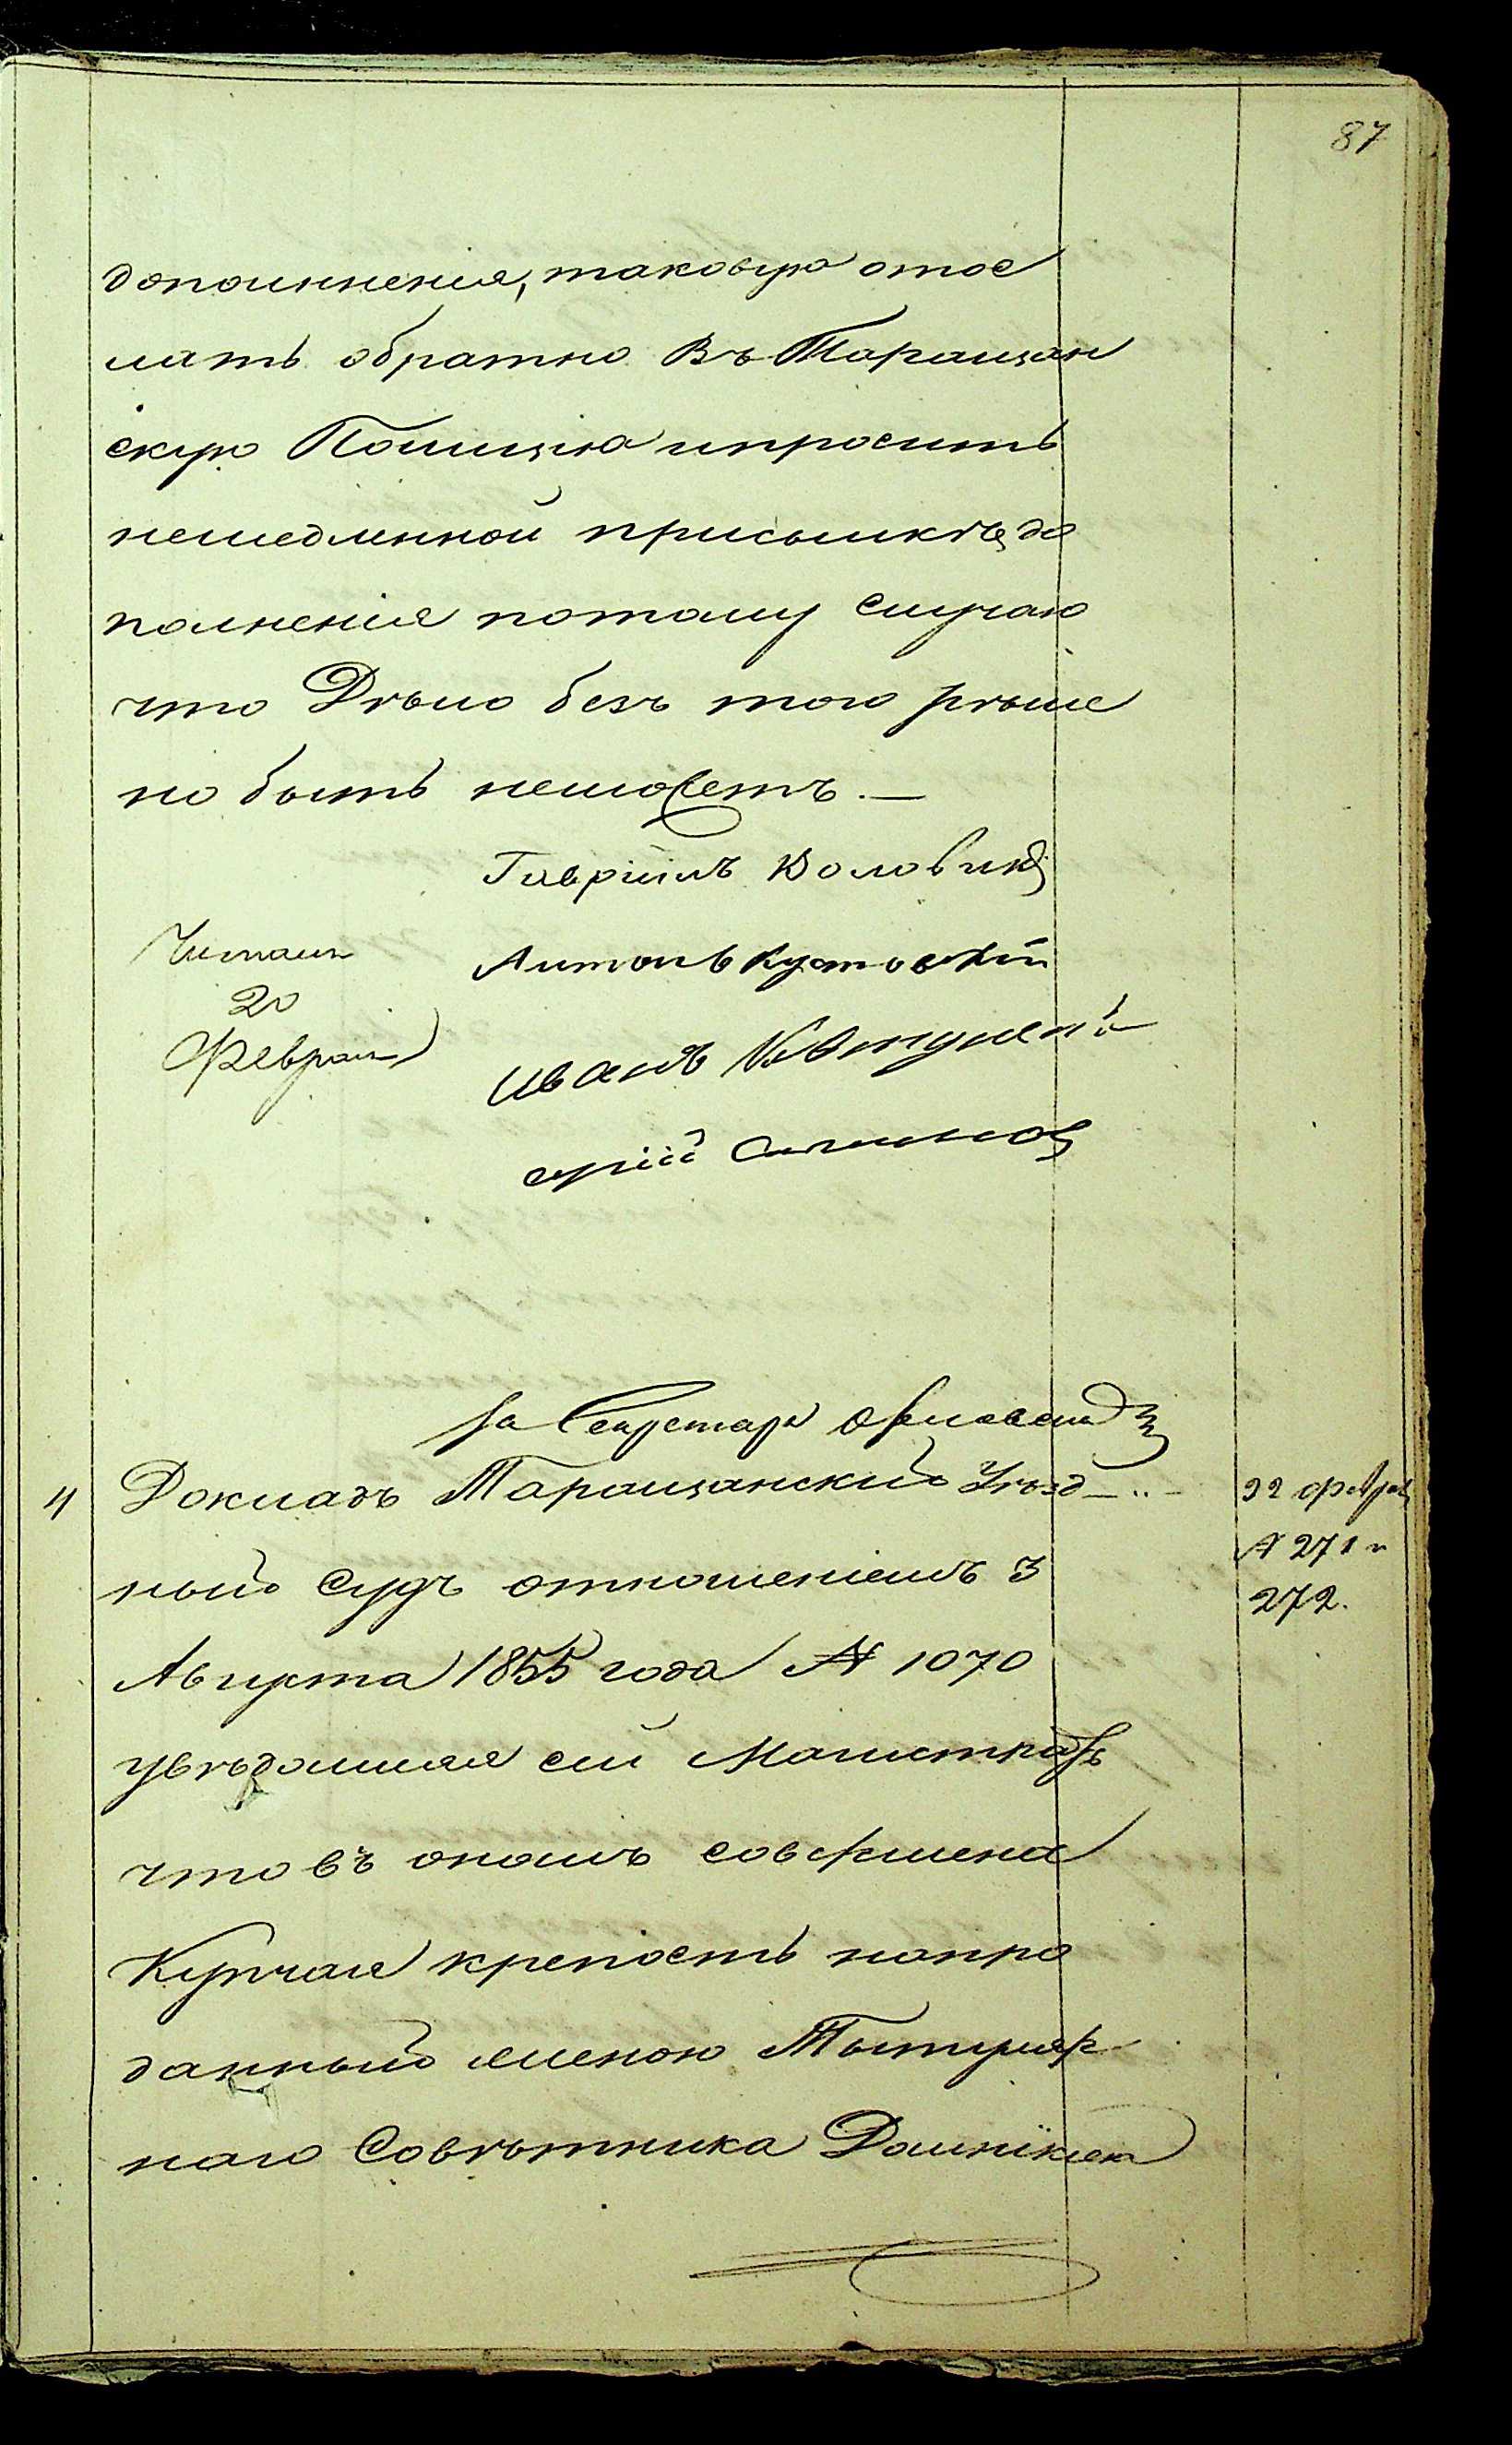 87
дополнненія, таковую отос
лать обратно въ Таращан
скую Полицію и просить
немедленной присылкѣ до
полненія потому случаю
что Дѣло безъ того рѣше
но быть неможетъ. —
Гавріилъ Воловик
Читали
20
Февраля
Антонъ Кустовскій
Иванъ
За Секретаря
4 Докладъ Таращанскій Уѣзд
ный Судъ отношеніемъ 3
Августа 1855 года № 1070
увѣдомляя сей Магистратъ
что въ ономъ совершена
Купчая крепость на про
данный женою Титуляр
наго Совѣтника
22 февра
№ 271 и
272.